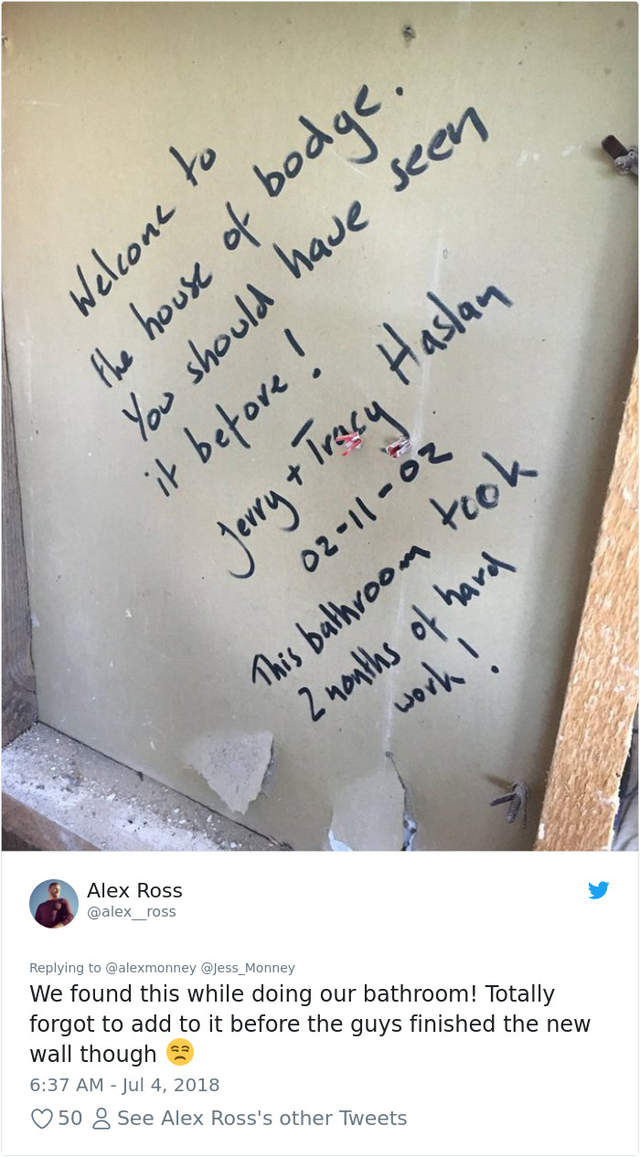 Welcome to
the house of bodge.
You should have seen
it before!
Jerry + Tracy Haslan
02-11-02
This bathroom took
2 months of hard
work!
Alex Ross
@alex__ross
Replying to @alexmonney @Jess_Monney
We found this while doing our bathroom! Totally
forgot to add to it before the guys finished the new
wall though 😒
6:37 AM - Jul 4, 2018
50 See Alex Ross's other Tweets